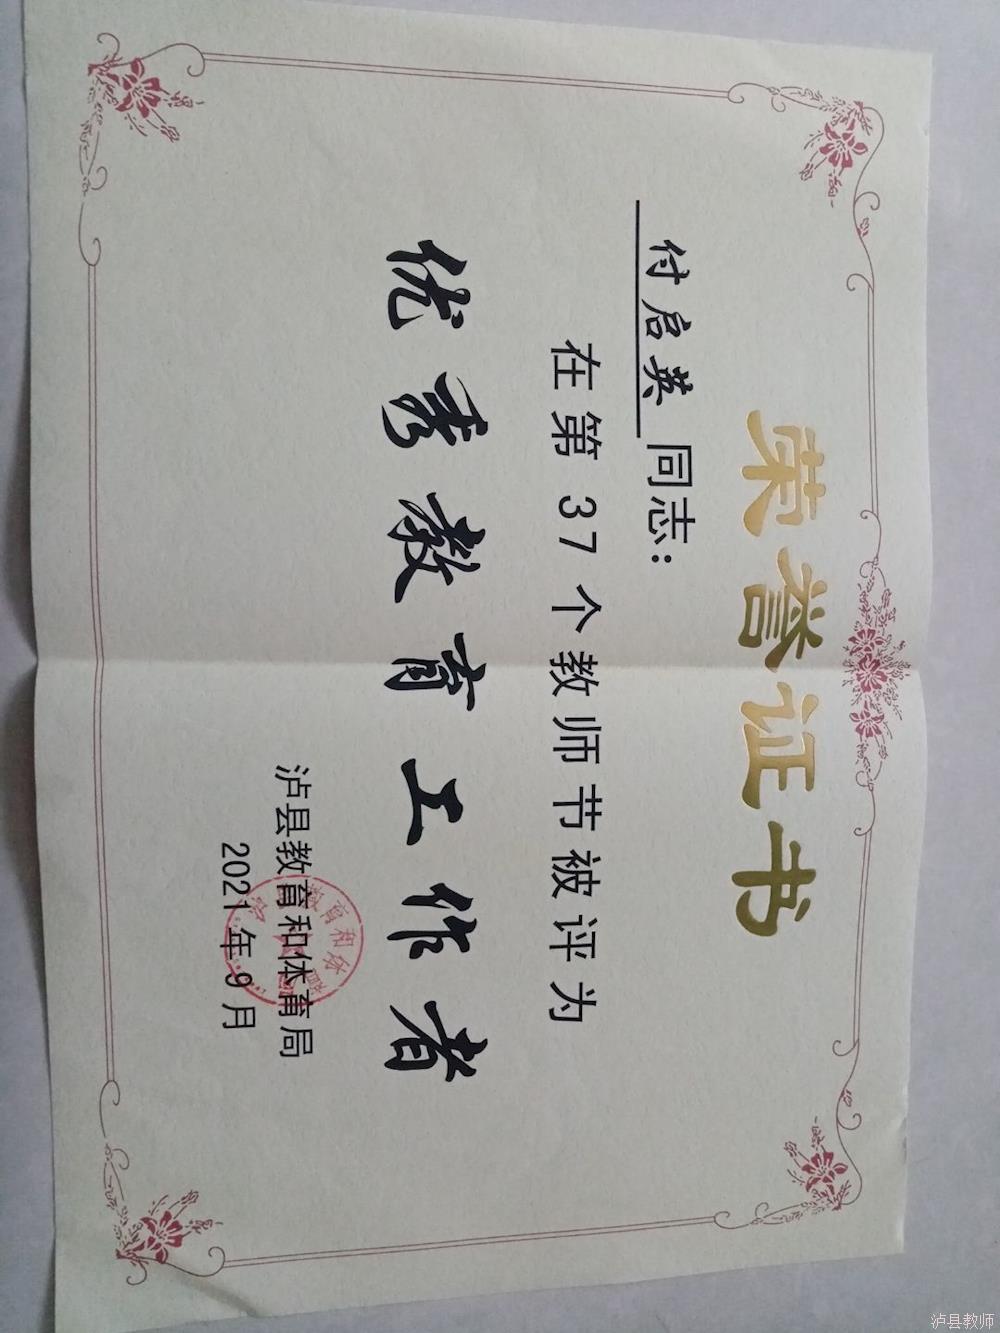 荣誉证书
付启英 同志：
在第37个教师节被评为
优秀教育工作者
泸县教育和体育局
2021年9月
泸县教师